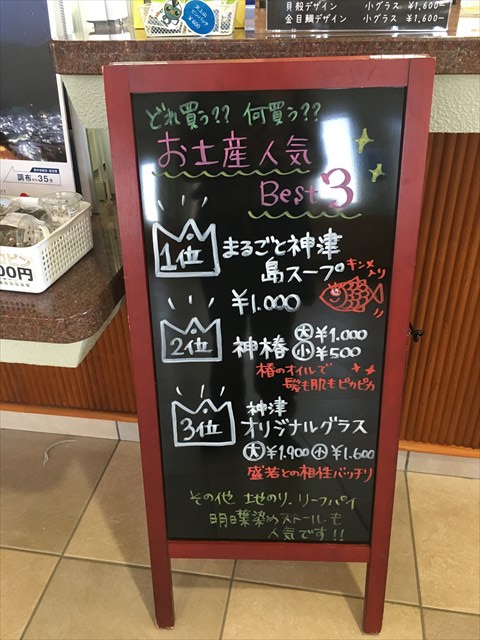 貝殻デザイン 小グラス ¥1,600-
金目鯛デザイン 小グラス ¥1,600-
天上山
¥600
調布から35分
00円
どれ買う?? 何買う??
お土産人気
Best 3
1位 まるごと神津
島スープ キンメ入り
¥1.000
2位 神椿 大¥1.000
小¥500
椿のオイルで
髪も肌もピカピカ
3位 神津
オリジナルグラス
大¥1.900 小¥1.600
盛若との相性バッチリ
その他 地のり、リーフパイ
明日葉染めストールも
人気です!!